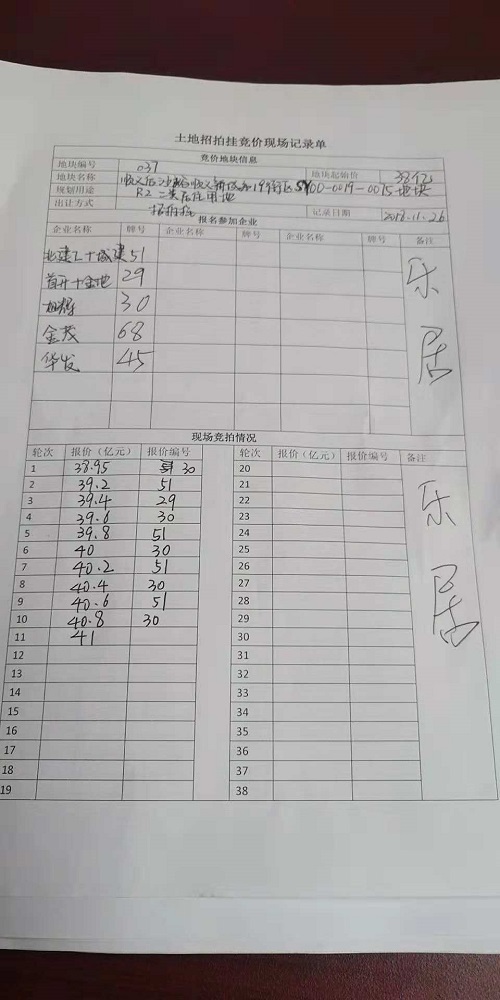 土地招拍挂竞价现场记录单
竞价地块信息
地块编号 037 地块起始价 38亿
地块名称 顺义后沙峪 顺义新城 19街区SY00-0019-0015地块
规划用途 R2二类居住用地
出让方式 招拍挂 记录日期 2018.11.26
报名参加企业
企业名称 牌号 企业名称 牌号 企业名称 牌号 备注
北建工+城建 51
首开+金地 29
30
金茂 68
华发 45
乐居
现场竞拍情况
轮次 报价（亿元） 报价编号 轮次 报价(亿元) 报价编号 备注
1 38.95 30 20
2 39.2 51 21
3 39.4 29 22
4 39.6 30 23
5 39.8 51 24
6 40 30 25
7 40.2 51 26
8 40.4 30 27
9 40.6 51 28
10 40.8 30 29
11 41 30
12 31
13 32
14 33
15 34
16 35
17 36
18 37
19 38
乐居